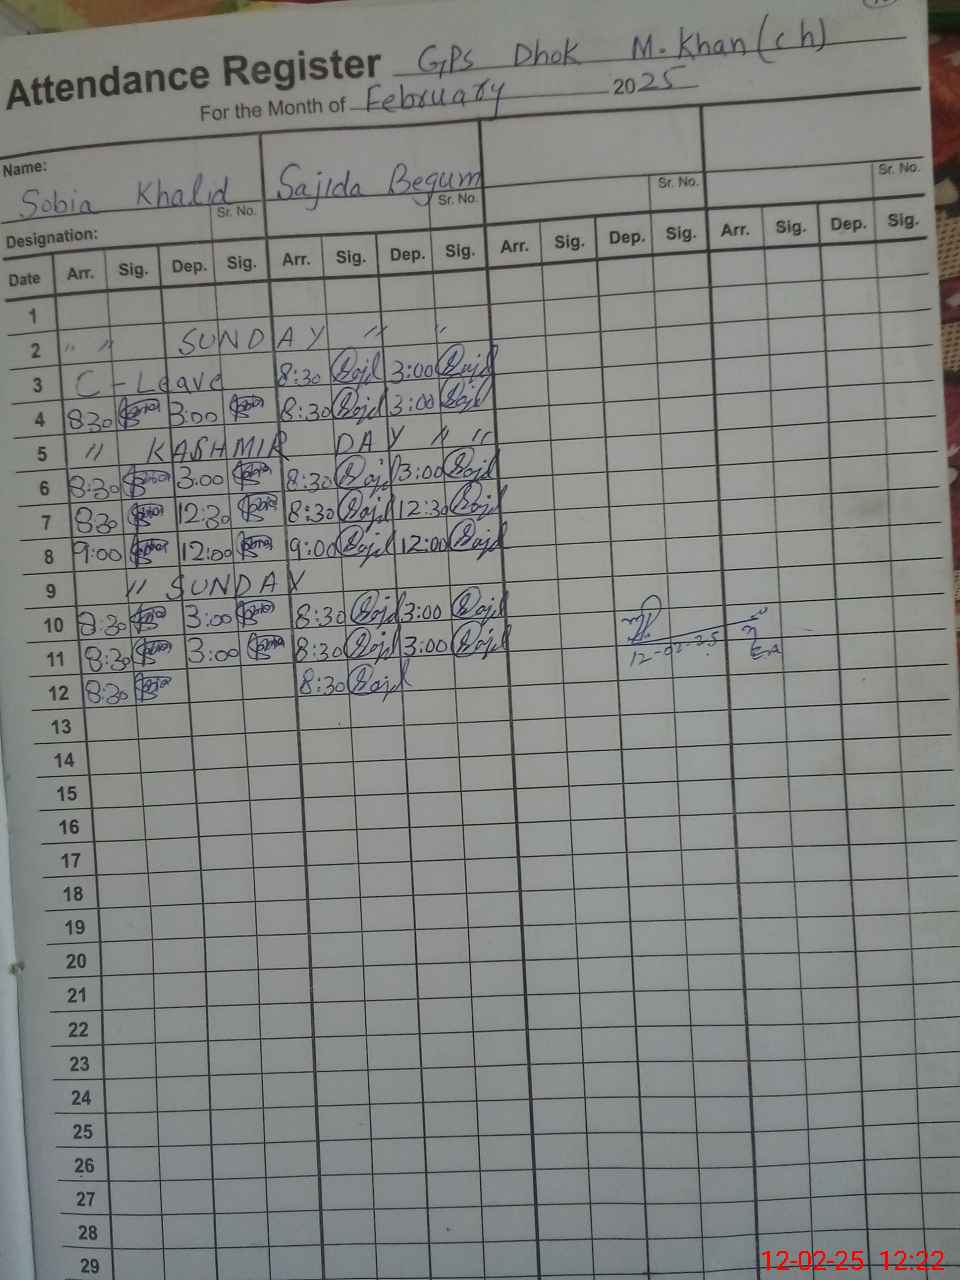 Attendance Register GPS Dhok M. Khan (ch)
For the Month of February 2025
Name:
Sobia Khalid Sajida Begum
Sr. No. Sr. No. Sr. No. Sr. No.
Designation:
Date Arr. Sig. Dep. Sig. Arr. Sig. Dep. Sig. Arr. Sig. Dep. Sig. Arr. Sig. Dep. Sig.
1
2 " " SUNDAY " "
3 C-Leave 8:30 Sajd 3:00 Sajd
4 8:30 3:00 8:30 Sajd 3:00 Sajd
5 " KASHMIR DAY " "
6 8:30 3:00 8:30 Sajd 3:00 Sajd
7 8:30 12:30 8:30 Sajd 12:30 Sajd
8 9:00 12:00 9:00 Sajd 12:00 Sajd
9 " SUNDAY
10 8:30 3:00 8:30 Sajd 3:00 Sajd
11 8:30 3:00 8:30 Sajd 3:00 Sajd
12-02-25
12 8:30 8:30 Sajd
13
14
15
16
17
18
19
20
21
22
23
24
25
26
27
28
29
12-02-25 12:22